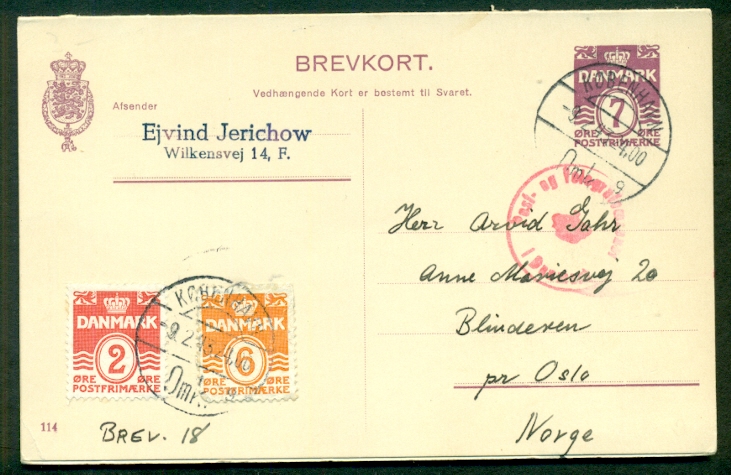 BREVKORT.
Vedhængende Kort er bestemt til Svaret.
Afsender
Ejvind Jerichow
Wilkensvej 14, F.
DANMARK
7
ØRE ØRE
POSTFRIMÆRKE
KØBENHAVN
Omk. 9
Post- og Telegraf
Herr Arvid Jahr
Anne Mariesvej 20
Blinderen
pr Oslo
Norge
DANMARK
2
ØRE ØRE
POSTFRIMÆRKE
DANMARK
6
ØRE ØRE
POSTFRIMÆRKE
KØBENHAVN
Omk.
114
BREV. 18